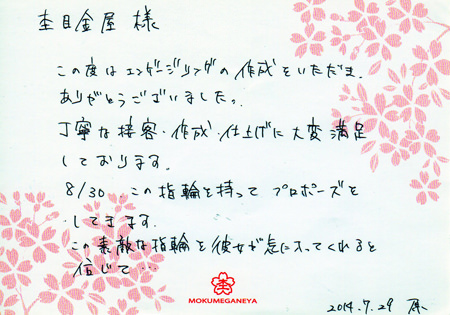 杢目金屋 様
この度はエンゲージリングの作成をいただき
ありがとうございました。
丁寧な接客・作成・仕上げに大変満足
しております。
8/30 この指輪を持って プロポーズを
してきます。
この素敵な指輪を彼女が気に入ってくれると
信じて…
MOKUMEGANEYA
2014.7.29